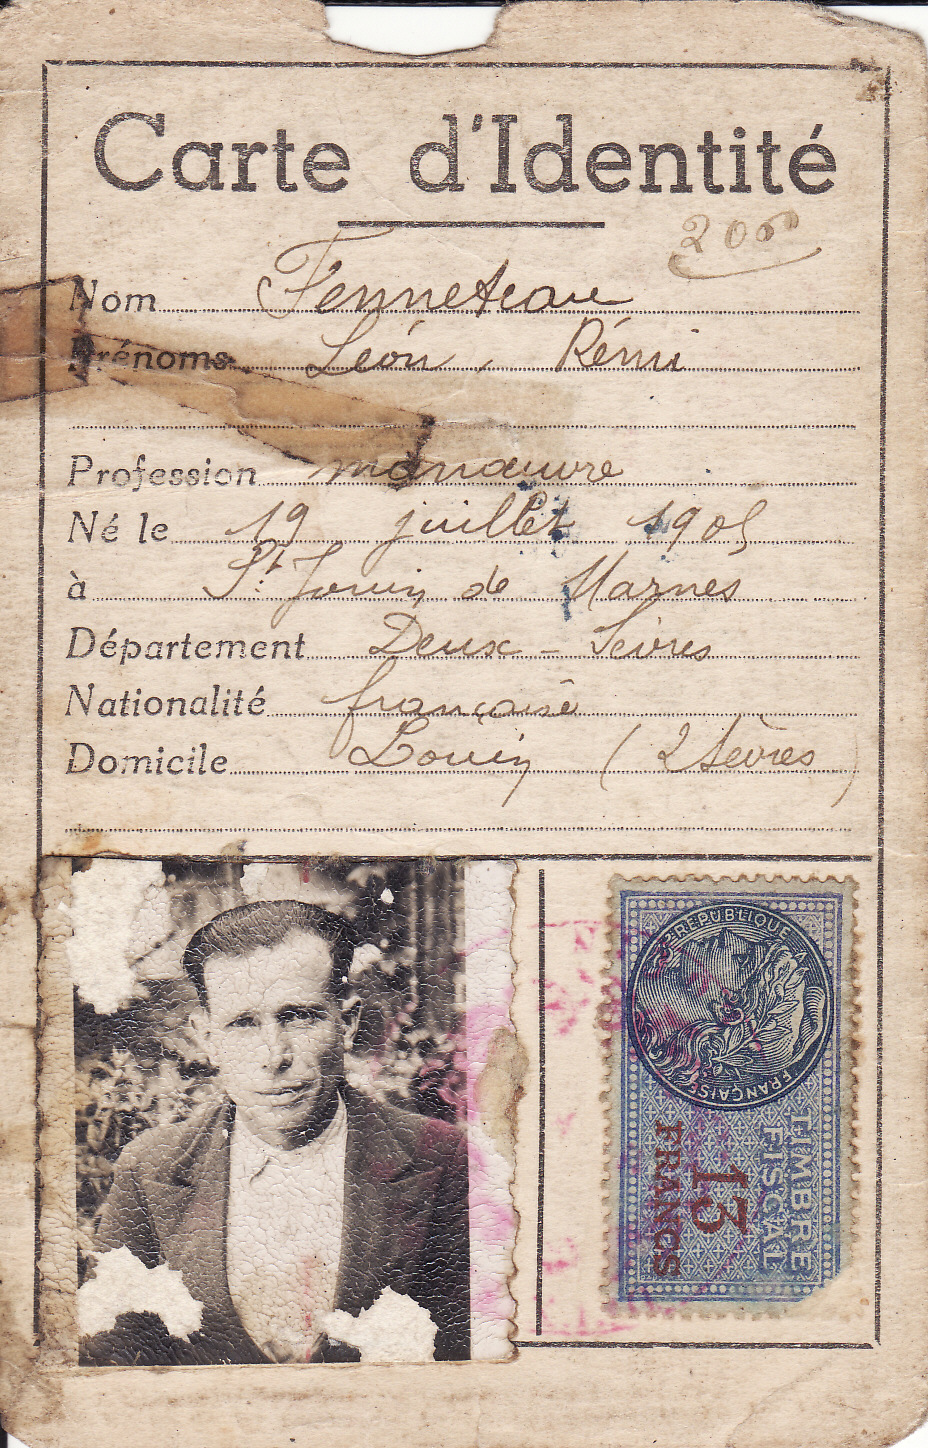 Carte d'Identité
2000
Nom Fenneteau
Prénoms Léon, Rémi
Profession manœuvre
Né le 19 juillet 1905
à St Jouin de Marnes
Département Deux-Sèvres
Nationalité française
Domicile Louin (2 Sèvres)
RÉPUBLIQUE
FRANÇAISE
TIMBRE
FISCAL
13
FRANCS